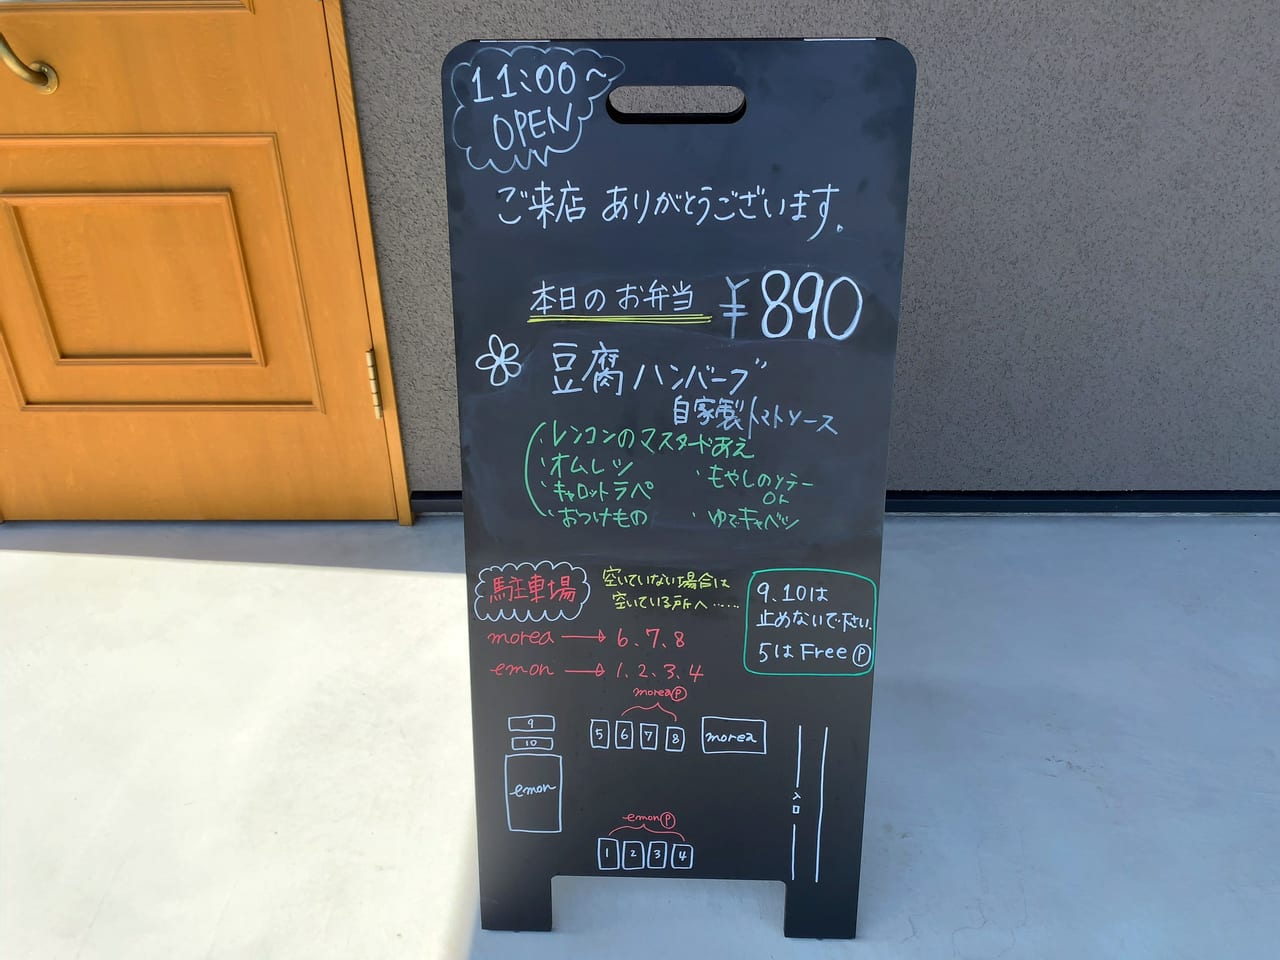 11:00~
OPEN
ご来店 ありがとうございます。
本日のお弁当 ¥890
豆腐ハンバーグ
自家製トマトソース
・レンコンのマスタードあえ
・オムレツ
・キャロットラペ
・おつけもの
・もやしのソテー
・ゆでキャベツ
駐車場
空いていない場合は
空いている所へ……
morea → 6、7、8
emon → 1、2、3、4
9、10は
止めないで下さい。
5は Free P
morea P
5 6 7 8
morea
9
10
emon
入口
emon P
1 2 3 4